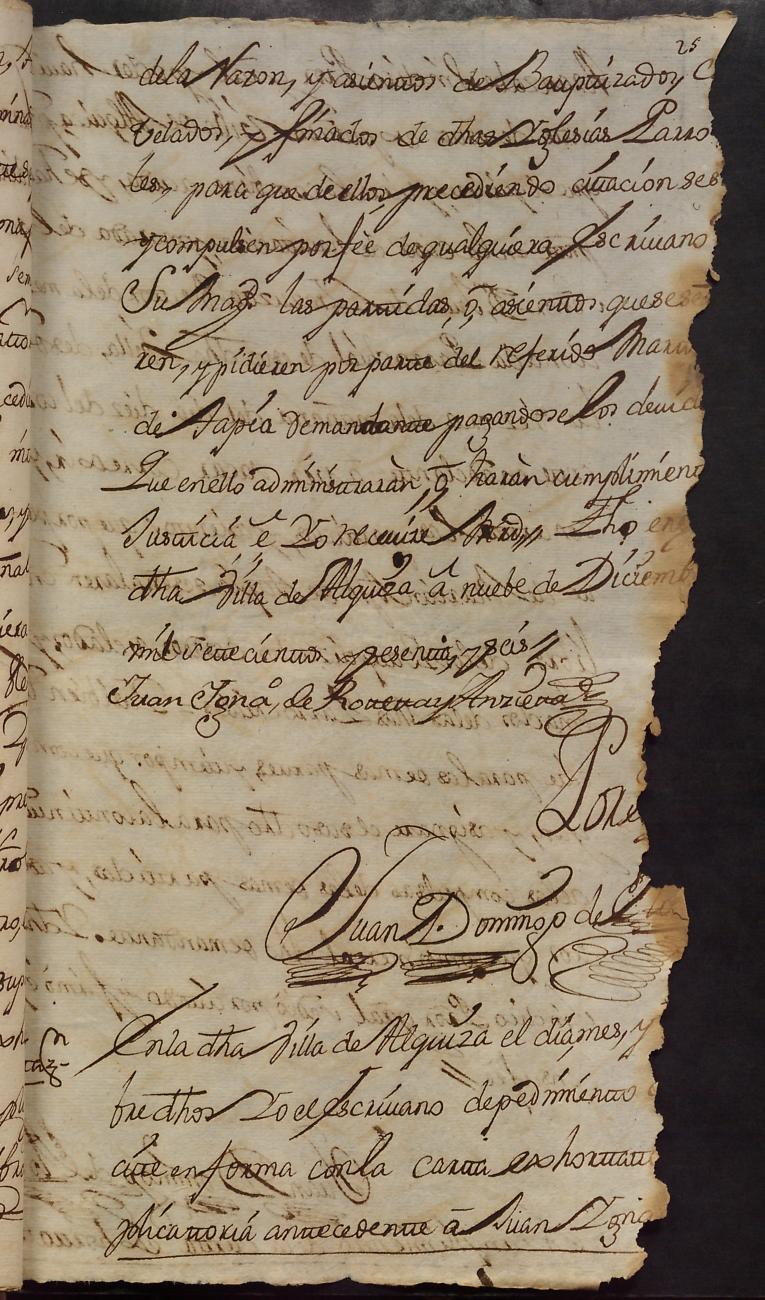 25
dela Razon, y asientos de Bauptizados, C
Velados, y finados de dhas Yglesias Parro
les, para que de ellos precediendo citacion se s
y compulsen por feè de qualquiera Escrivano
Su Magd. las partidas, ò, asientos que se se
ren, y pidieren por parte del referido Mar
de Tapia demandante pagandose los devid
Que en ello administraràn, ò haràn cumplimien
Justicia è Yo recivire Mrd,, Fho en
dha Villa de Alquiza à nuebe de Diciemb
mil setecientos y sesenta, y seis //
Juan Igno. de
Por
Juan Domingo de
En la dha Villa de Alquiza el dia, mes, y
bre dhos Yo el escrivano de pedimento
cite en forma con la carta exhortat
plicattoria antecedente à Juan Ygn